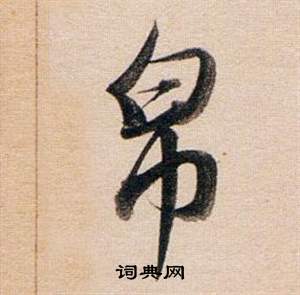 帛
词典网